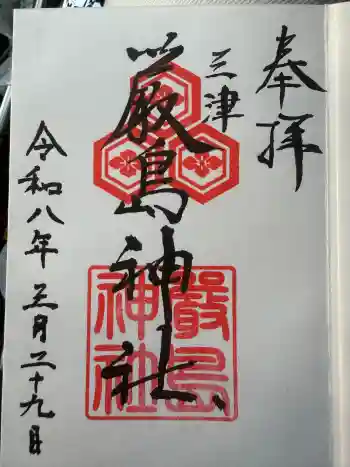 奉拝
三津
厳島神社
嚴島神社
令和八年三月二十九日